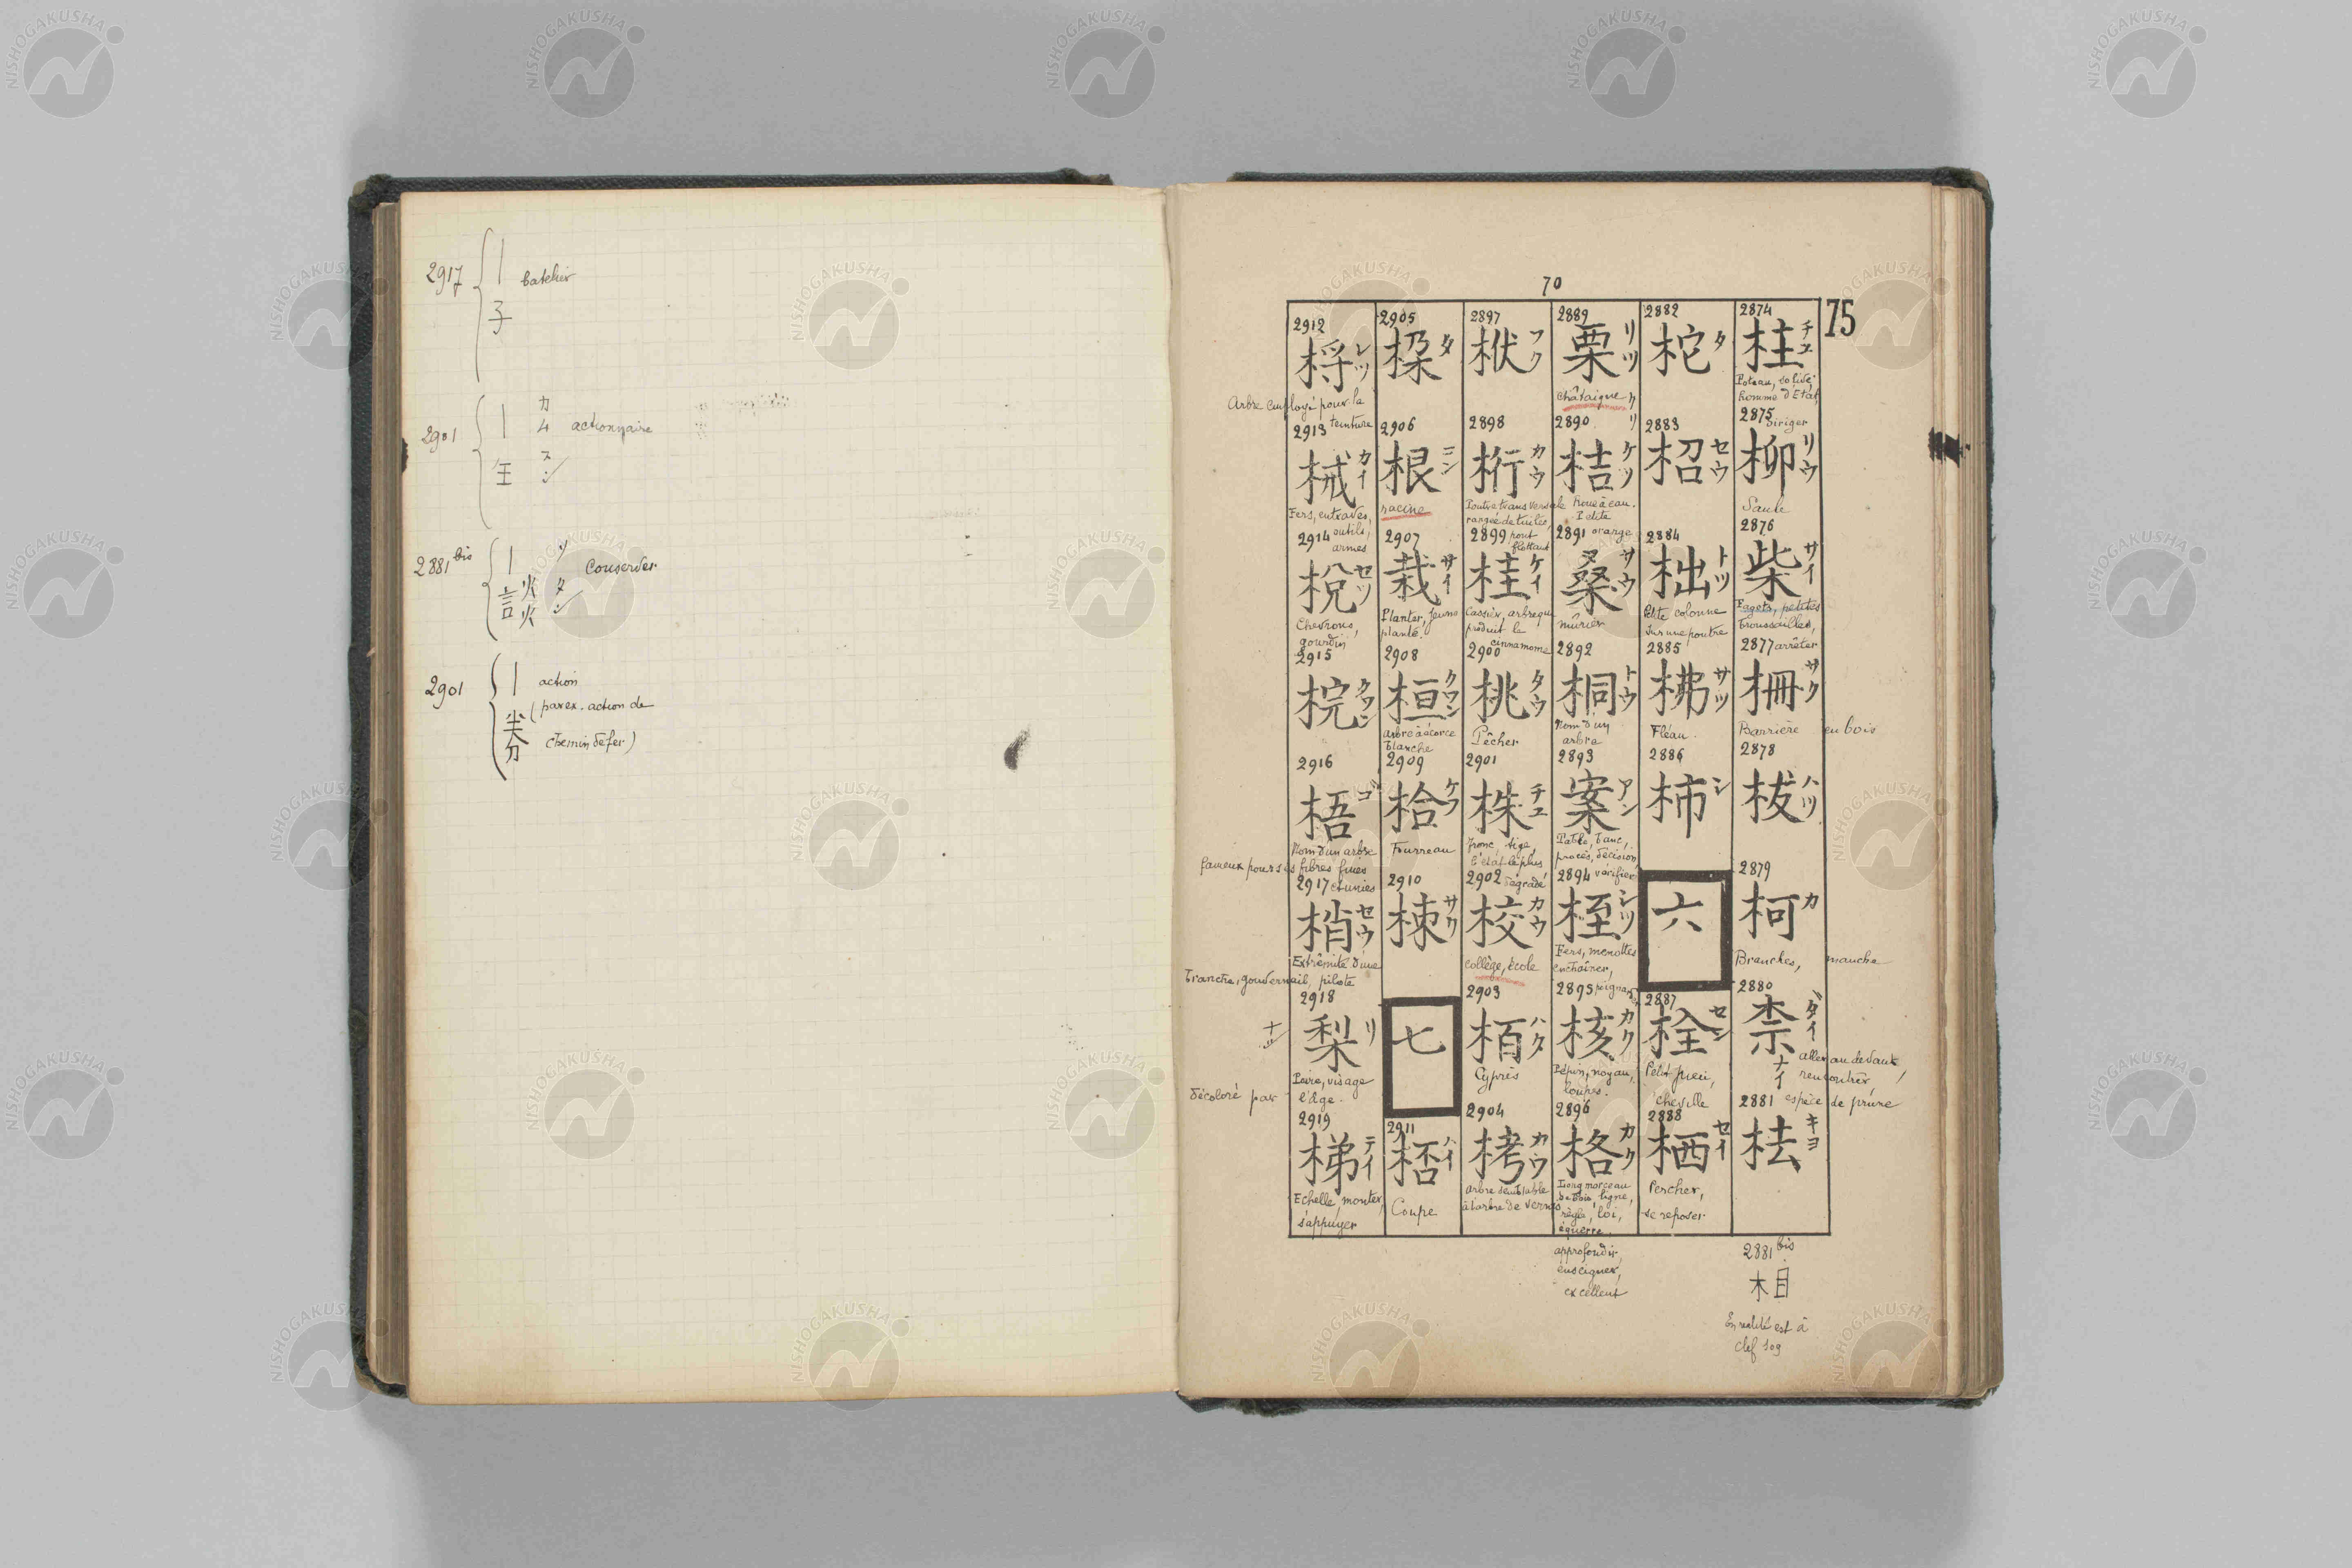 2917
|
batelier
子
2901
|
カ
ム
actionnaire
主
2881 bis
|
ソ
conserver
談
タン
2901
|
action
(par ex. action de
chemin de fer)
70
75
2874
柱
チユ
Poteau, solide,
homme d'Etat,
diriger
2875
柳
リウ
Saule
2876
柴
サイ
Fagots, petites
broussailles,
arrêter
2877
柵
サク
Barrière en bois
2878
柭
ハツ
2879
柯
カ
Branches, manche
2880
柰
ダイ
ナイ
aller au devant,
rencontrer,
espèce de prune
2881
柱
キヨ
2881 bis
相
En realité est à
clef 109
2882
柁
タ
2883
柖
セウ
2884
柮
トツ
Petite colonne
sur une poutre
2885
柫
サツ
Fléau.
2886
柿
シ
六
2887
栓
セン
Petit pieu,
cheville
2888
栖
セイ
Percher,
se reposer
2889
栗
リツ
châtaigne
2890
桔
ケツ
Roue à eau.
Petite
orange
2891
桑
サウ
mûrier
2892
桐
トウ
Nom d'un
arbre
2893
案
アン
Table, banc,
procès, décision,
vérifier
2894
桎
シツ
Fers, menottes
enchaîner,
2895
核
カク
Pépin, noyau,
loupes.
2896
格
カク
Long morceau
de bois, ligne,
règle, loi,
équerre,
approfondir,
enseigner,
excellent
2897
栿
フク
2898
桁
カウ
Poutre transversale
rangée de tuiles,
pont
flottant
2899
桂
ケイ
Cassier, arbre qui
produit le
cinnamome
2900
桃
タウ
Pêcher
2901
株
チユ
Tronc, tige
l'état le plus
dégradé
2902
校
カウ
collège, école
2903
栢
ハク
Cyprès
2904
栲
カウ
arbre semblable
à l'arbre de vernis
2905
朶
タ
2906
根
コン
racine
2907
栽
サイ
Planter, jeune
plante.
2908
桓
クワン
arbre à écorce
blanche
2909
枱
ケフ
Fourreau
2910
栜
サク
七
2911
桮
ハイ
Coupe
2912
桪
レツ
Arbre employé pour la
teinture
2913
械
カイ
Fers, entraves,
outils,
armes
2914
梲
セツ
Chevrons,
gourdin
2915
梡
クワン
2916
梧
ゴ
Nom d'un arbre
fameux pour ses fibres fines
et unies
2917
梢
セウ
Extrêmité d'une
branche, gouvernail, pilote
2918
梨
リ
ナシ
Poire, visage
décoloré par l'âge.
2919
梯
テイ
Echelle, monter,
s'appuyer